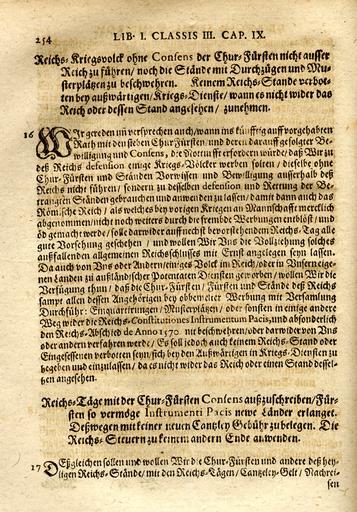 254 LIB. I. CLASSIS III. CAP. IX.
Reichs-Kriegsvolck ohne Consens der Chur-Fürsten nicht ausser
Reich zu führen/ noch die Stände mit Durchzügen und Mu-
sterplätzen zu beschwehren. Keinem Reichs-Stande verbot-
ten bey außwärtigen/ Kriegs-Dienste/ wann es nicht wider das
Reich oder dessen Stand angesehen/ zunehmen.
16 Wir gereden uñ versprechen auch/ wann ins künfftig auff vorgehabten
Rath mit den sieben Chur-Fürsten/ und deren darauff gefolgter Be-
willigung und Consens, die Notturfft erfordern würde/ daß Wir zu
deß Reichs defension einige Kriegs-Völcker werben solten/ dieselbe ohne
Chur-Fürsten und Ständen Vorwissen und Bewilligung ausserhalb deß
Reichs nicht führen/ sondern zu desselben defension und Rettung der Be-
trangten Ständen gebrauchen und anwenden zu lassen/ damit dann auch das
Römische Reich/ als welches bey vorigen Kriegen an Mannschafft mercklich
abgenommen/ nicht noch weiters durch die frembde Werbungen entblöst/ und
öd gemacht werde/ solle darwider auff nechst bevorstehendem Reichs-Tag alle
gute Vorsehung geschehen/ und wollen Wir Uns die Vollziehung solches
außfallenden allgemeinen Reichschlusses mit Ernst angelegen seyn lassen.
Da auch von Uns oder Andern/ einiges Volck im Reich/ oder in Unsern eige-
nen Landen zu außländischer Potentaten Diensten geworben/ wollen Wir die
Verfügung thun/ daß die Chur-Fürsten/ Fürsten und Stände deß Reichs
sampt allen dessen Angehörigen bey obbemelter Werbung mit Versamlung
Durchführ: Einquartirungen/ Musterplätzen/ oder sonsten in einige andere
Weg wider die Reichs-Constitutiones Instrumentum Pacis, und absonderlich
den Reichs-Abschied de Anno 1570. nit beschwehren/ oder darwider von Uns
oder andern verfahren werde/ Es soll jedoch auch keinem Reichs-Stand oder
Eingesessenen verbotten seyn/ sich bey den Außwärtigen in Kriegs-Diensten zu
begeben und einzulassen/ da es nicht wider das Reich oder einen Stand dessel-
ben angesehen.
Reichs-Täge mit der Chur-Fürsten Consens außzuschreiben/ Für-
sten so vermöge Instrumenti Pacis newe Länder erlanget.
Deßwegen mit keiner neuen Cantzley Gebühr zu belegen. Die
Reichs-Steuern zu keinem andern Ende anwenden.
17 Deßgleichen sollen und wollen Wir die Chur-Fürsten und andere deß hey-
ligen Reichs-Stände/ mit den Reichs-Tägen/ Cantzeley-Gelt/ Nachrei-
sen